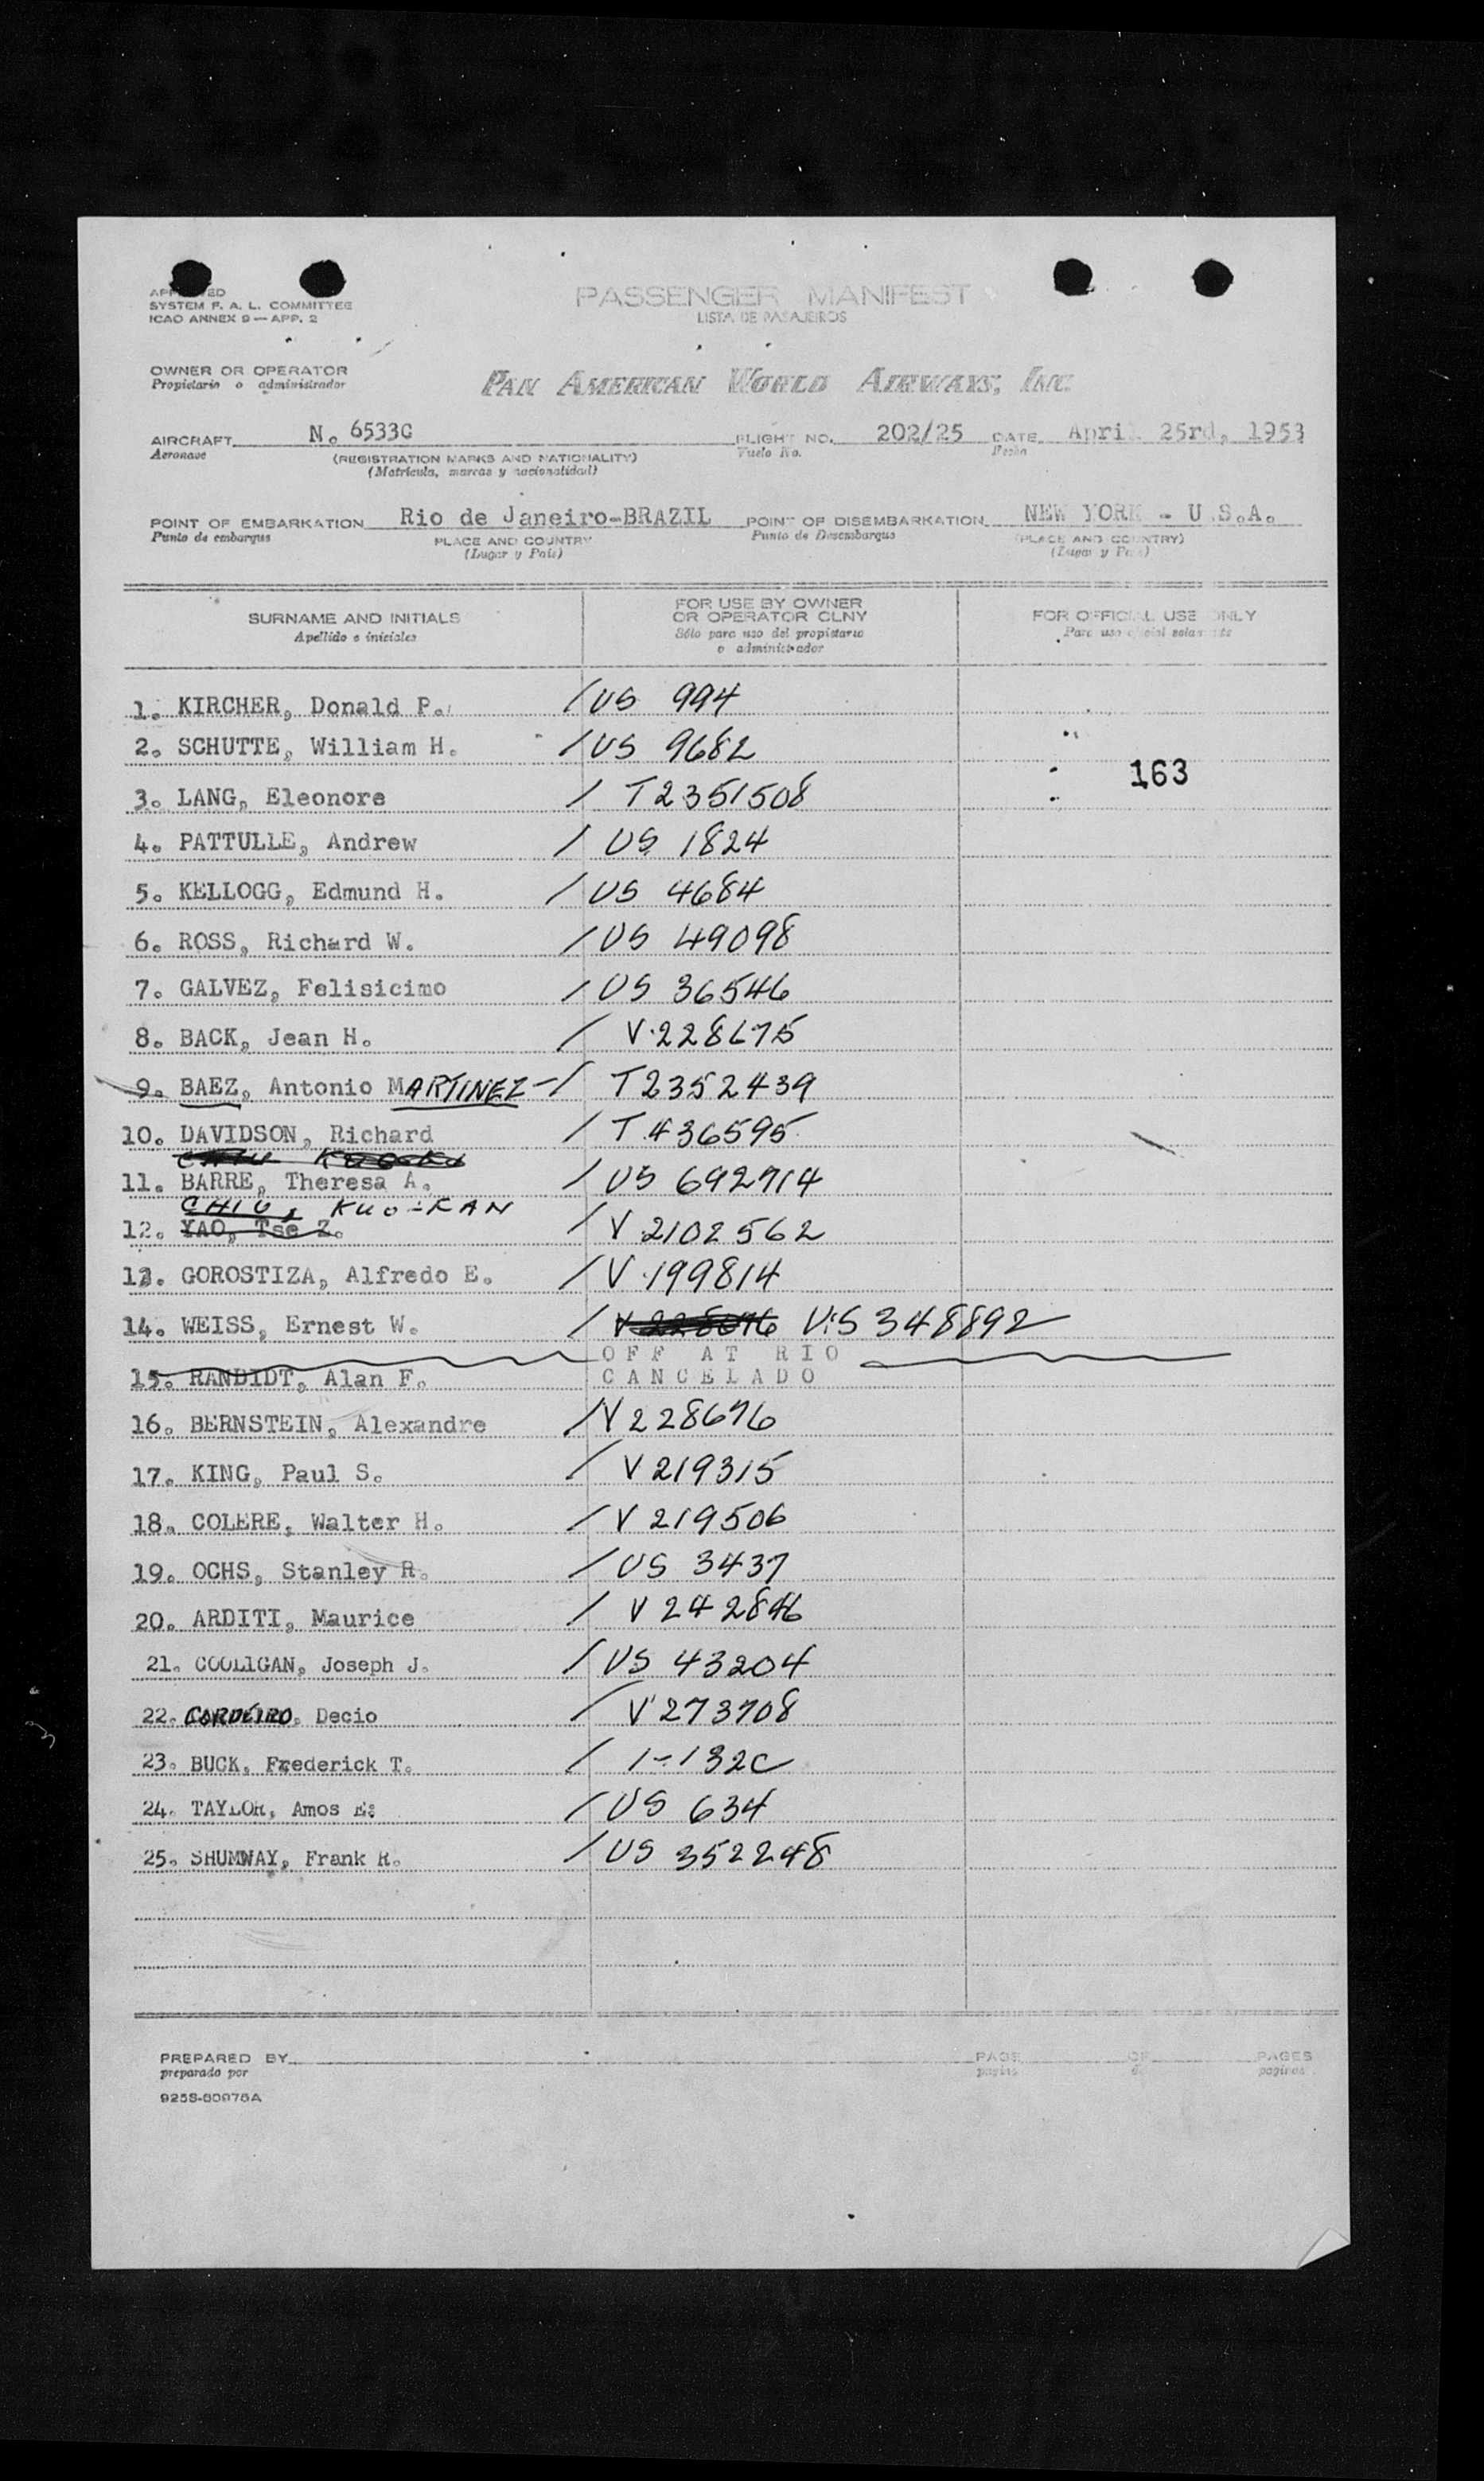 APPROVED
SYSTEM F. A. L. COMMITTEE
ICAO ANNEX 9 — APP. 2
PASSENGER MANIFEST
LISTA DE PASAJEIROS
OWNER OR OPERATOR
Propietario o administrador
PAN AMERICAN WORLD AIRWAYS, INC
AIRCRAFT N. 6533C FLIGHT NO. 202/25 DATE April 25rd, 1953
Aeronave (REGISTRATION MARKS AND NATIONALITY) Vuelo No. Fecha
(Matrícula, marcas y nacionalidad)
POINT OF EMBARKATION Rio de Janeiro-BRAZIL POINT OF DISEMBARKATION NEW YORK - U.S.A.
Punto de embarque PLACE AND COUNTRY Punto de Desembarque (PLACE AND COUNTRY)
(Lugar y País) (Lugar y País)
SURNAME AND INITIALS FOR USE BY OWNER OR OPERATOR OLNY FOR OFFICIAL USE ONLY
Apellido e iniciales Sólo para uso del propietario o administrador Para uso oficial solamente
1. KIRCHER, Donald P. / US 994
2. SCHUTTE, William H. / US 9682
163
3. LANG, Eleonore / T2351508
4. PATTULLE, Andrew / US 1824
5. KELLOGG, Edmund H. / US 4684
6. ROSS, Richard W. / US 49098
7. GALVEZ, Felisicimo / US 36546
8. BACK, Jean H. / V.228675
9. BAEZ, Antonio MARTINEZ - / T2352439
10. DAVIDSON, Richard / T436595
11. BARRE, Theresa A. / US 692714
CHIU, KUO-KAN
12. YAO, Tse Z. / V 2102562
13. GOROSTIZA, Alfredo E. / V.199814
14. WEISS, Ernest W. / V 228676 US 348892
OFF AT RIO
15. RANDIDT, Alan F. CANCELADO
16. BERNSTEIN, Alexandre / V 228676
17. KING, Paul S. / V 219315
18. COLERE, Walter H. / V 219506
19. OCHS, Stanley R. / US 3437
20. ARDITI, Maurice / V 242846
21. COOLIGAN, Joseph J. / US 43204
22. CORDEIRO, Decio / V 273708
23. BUCK, Frederick T. / 1-132C
24. TAYLOR, Amos E. / US 634
25. SHUMWAY, Frank R. / US 352248
PREPARED BY PAGE OF PAGES
preparado por pagina de paginas